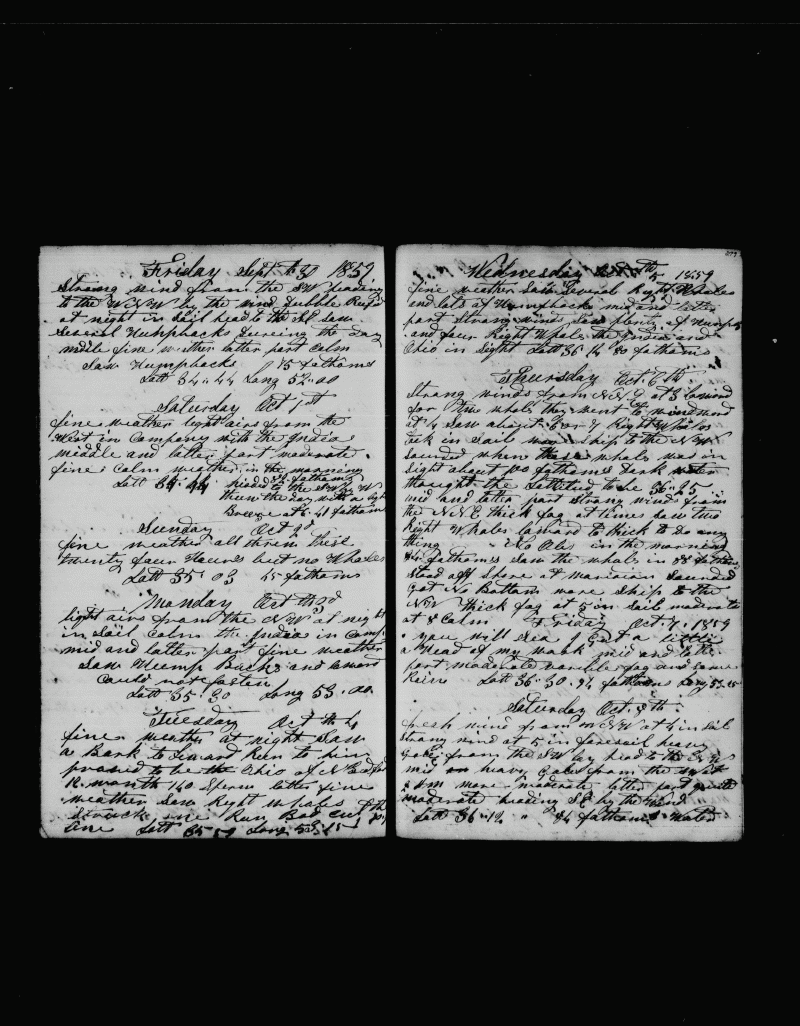 Friday Sept th 30 1859
Strong wind from the SW heading
to the WNW by the wind Dubble Reeft
at night in Sail head to the SE Saw
Several Humpbacks Dureing the Day
midle fine wither latter part Calm
Saw Humpbacks 75 fathoms
Latt 34.. 44 Long 52.00
Saturday Oct 1st
fine weather light airs from the
West in Company with the India
middle and latter part moderate
fine & Calm weather in the morning
Latt 35 44 54 fathoms
headed to the SW by W
thrue the day with a light
Breeze at 6. 41 fathoms
Sunday Oct 2d
fine weather all threw these
twenty four Hours but no Whales
Latt 35 03 45 fathoms
Monday Oct th 3d
light airs from the NW at night
in Sail Calm the India in Comp
mid and latter part fine weather
Saw Hump Backs and
Could not fasten
Latt 35.. 30 Long 53.00
Tuesday Oct th 4
fine weather at night Saw
a Bark to Leward Run to him
proved to be the Ohio of N Bedford
12 month 160 Sperm latter fine
weather Saw Right Whales
Struck one Run Bad cut
line Latt 35 59 Long 53.15
Wednesday th 5 1859
fine weather Saw Several Right Whales
and lots of Humpbacks mid and latter
part Strong winds Saw plenty of Humps
and four Right Whales the India and
Ohio in Sight Latt 36 14 80 fathoms
Thursday Oct 6th
Strong winds from NNE at 3 lowered
for two whales they went to windward
at 4 Saw about 6 or 7 Right Whales
in Sail ship to the NW
Sounded when these whales was in
Sight about 100 fathoms Dark water
thought the Lattitud to be 36.. 25
mid and latter part Strong winds from
the NNE thick fog at times Saw two
Right Whales Laward to thick to Do any
thing No Obs in the morning
84 fathoms Saw the whals in 78 fathoms
Stood off Shore at Sounded
Got No Bottom wore Ship to the
NW thick fog at 5 in Sail moderate
at 8 Calm Friday Oct 7. 1859
you will Sea I Got a little
a Head of my work mid and latter
part moderate fog and Some
Rain Latt 36.. 30. 94 fathoms Long 53.15
Saturday Oct. 8th
fresh wind from NNW at 4 in Sail
Strong wind at 5 in foresail heavy
Gale from the SW by head to the
mid heavy Gales from the
4 Am more moderate latter part quite
moderate heading SE by the wind
Latt 36.. 12 " 84 fathoms